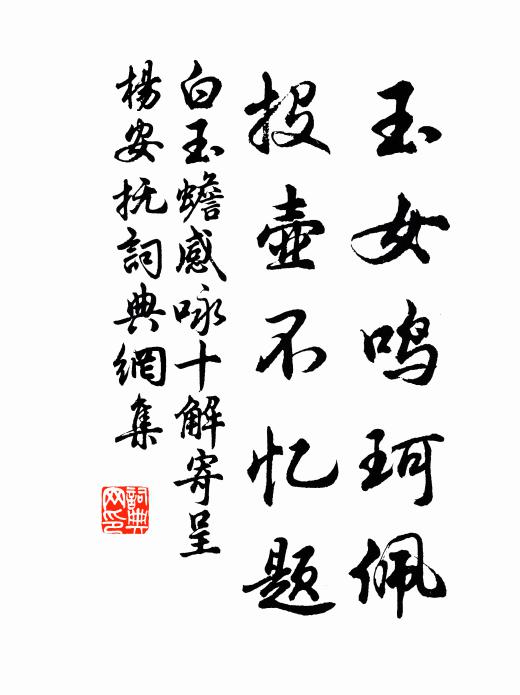 玉女鸣珂佩
投壶不忆题
白玉蟾感咏十解寄呈
楊安抚詞典網集
詞典
网印